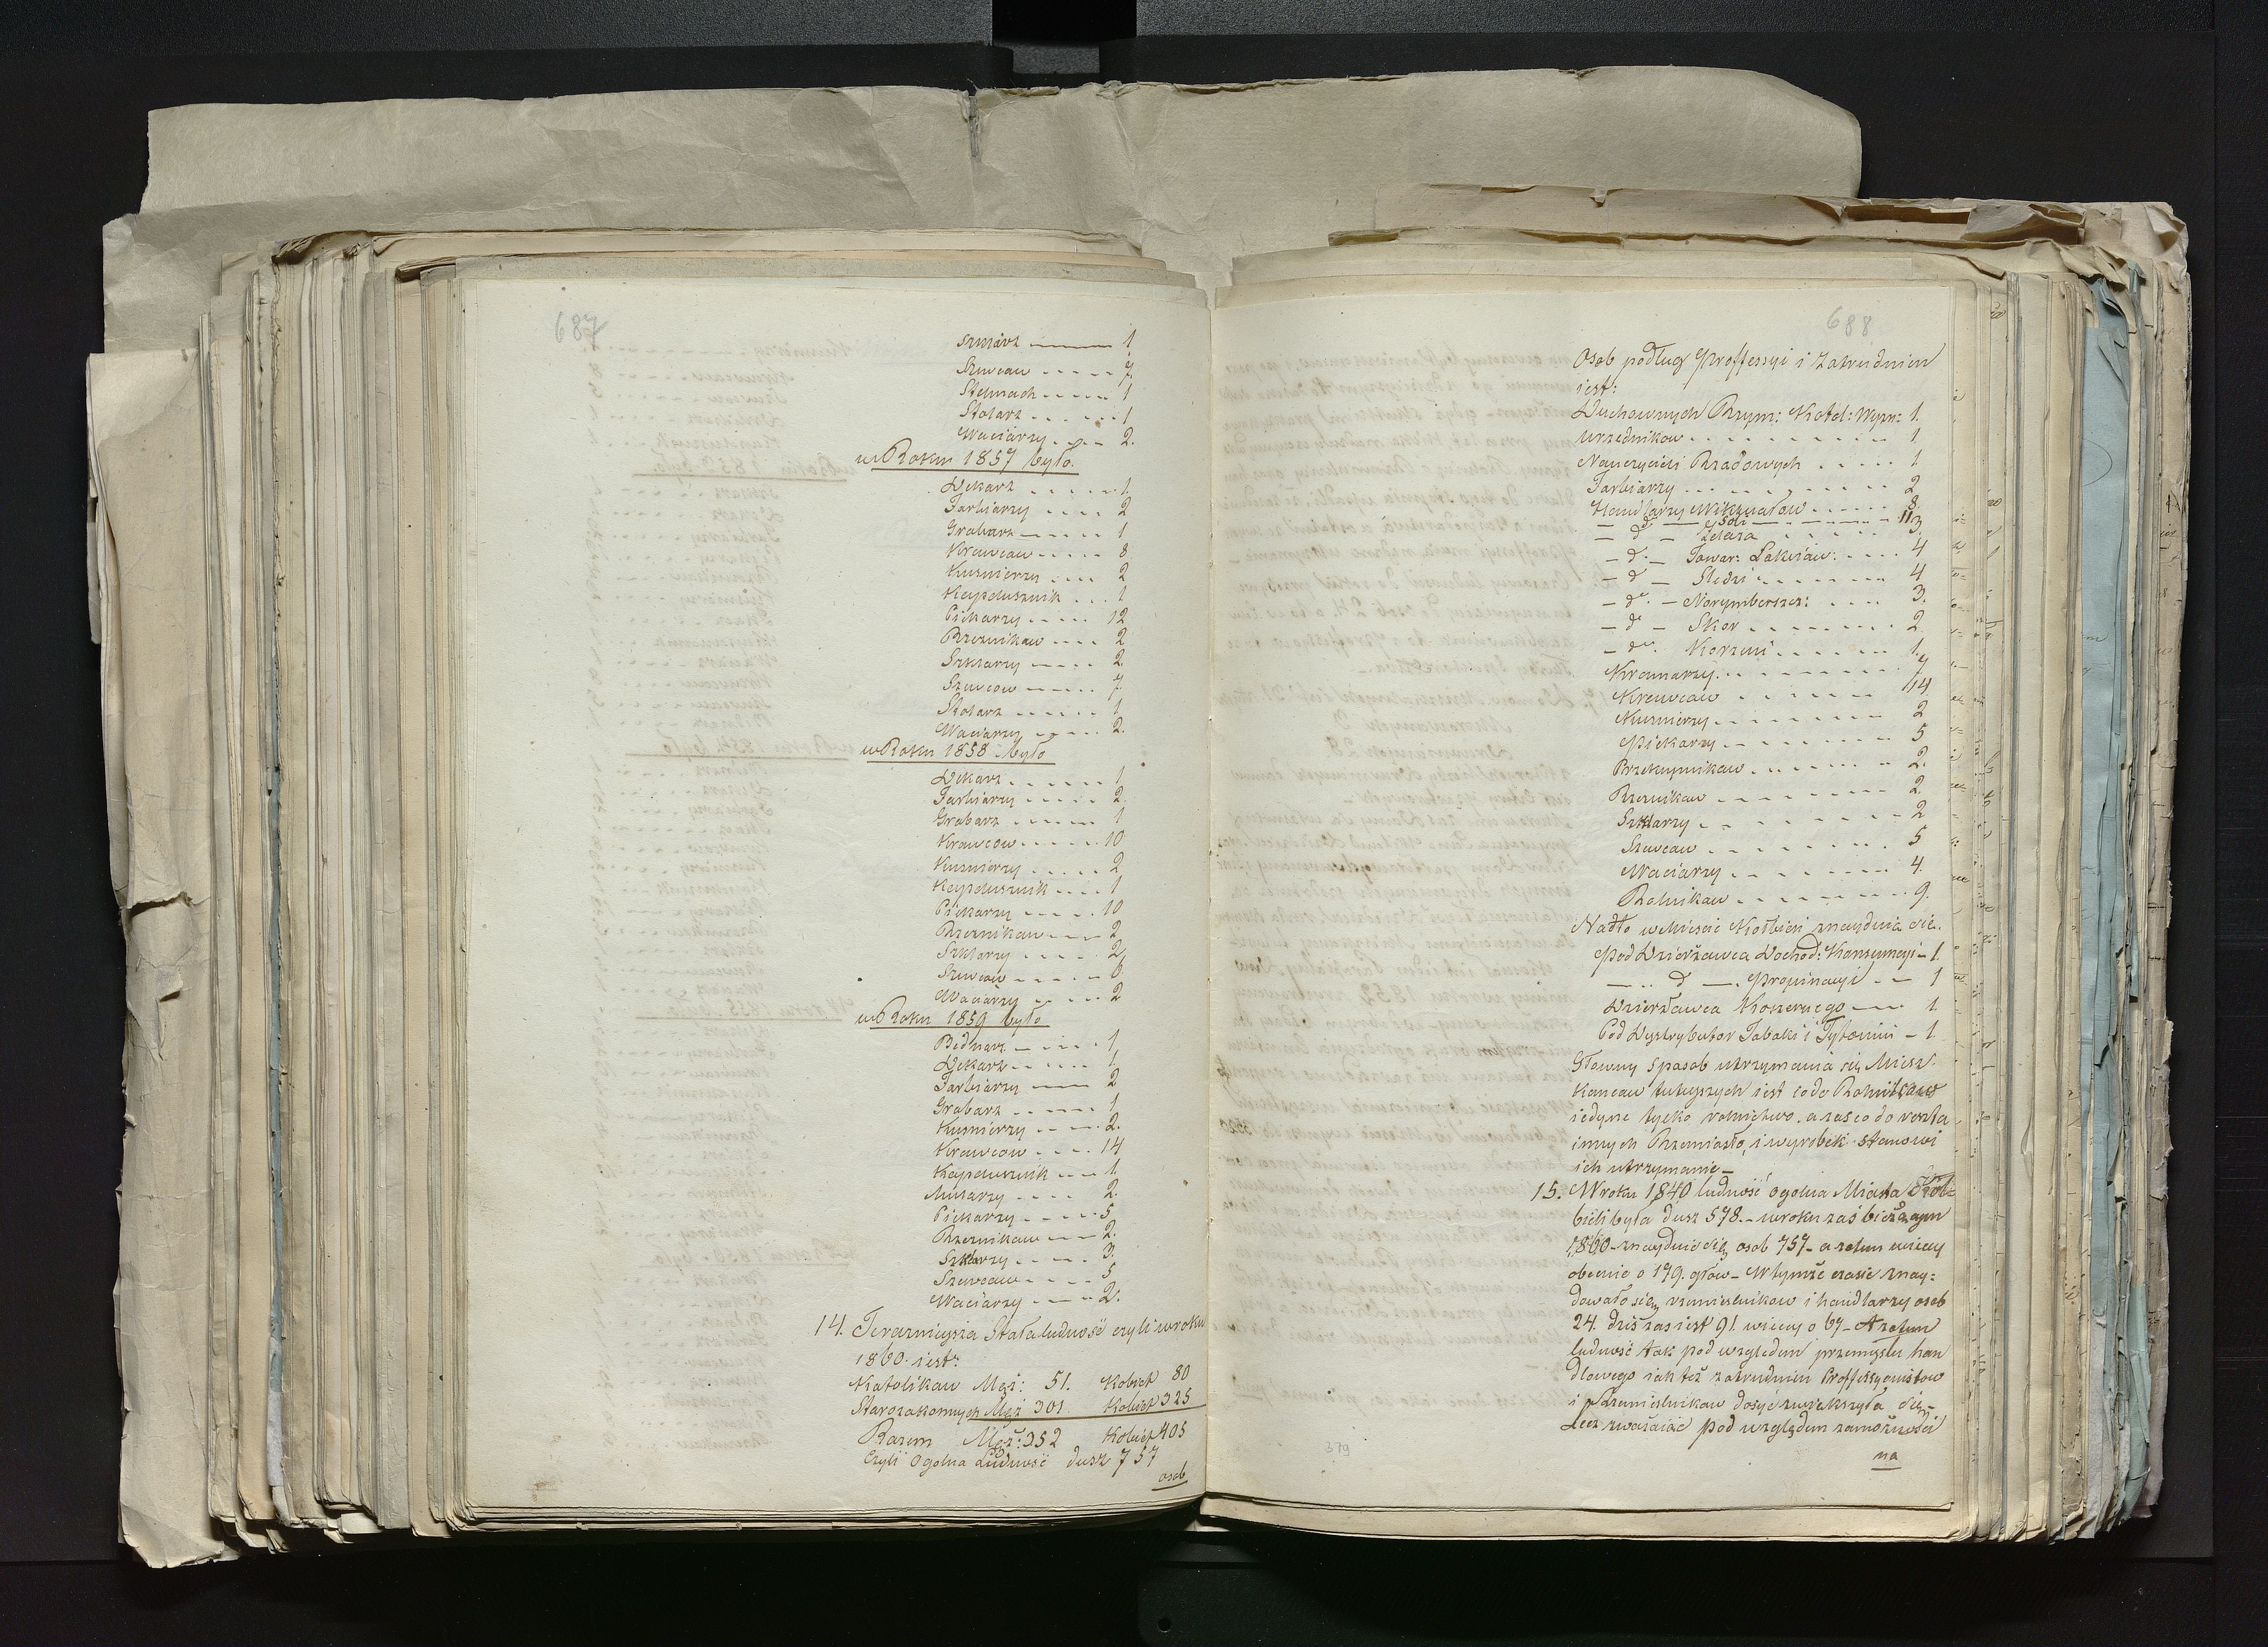 687
Szklarz 1
Szewców 7
Stelmach 1
Stolarz 1
Waciarzy 2.
w Roku 1857 było.
Lekarz 1
Farbiarzy 2
Grabarz 1
Krawców 8
Kuśnierzy 2
Kapelusznik 1
Piekarzy 12
Rzeźników 2
Szklarzy 2
Szewców 7
Stolarz 1
Waciarzy 2.
w Roku 1858 było
Lekarz 1
Farbiarzy 2
Grabarz 1
Krawców 10
Kuśnierzy 2
Kapelusznik 1
Piekarzy 10
Rzeźników 2
Szklarzy 2
Szewców 6
Waciarzy 2
w Roku 1859 było
Bednarz 1
Lekarz 1
Farbiarzy 2
Grabarz 1
Kuśnierzy 2.
Krawców 14
Kapelusznik 1
Mularzy 2.
Piekarzy 5
Rzeźników 2.
Szklarzy 3.
Szewców 5
Waciarzy 2.
14. Teraznieysza Stała ludność czyli w roku
1860. iest:
Katolików Męż: 51. Kobiet 80
Starozakonnych Męż 301 Kobiet 325
Razem Męż: 352 Kobiet 405
Czyli Ogolna Ludność dusz 757
osob
688
Osob podług Proffessyi i Zatrudnien
iest:
Duchownych Rzym: Katol: Wyzn: 1.
Urzędnikow 1
Nauczycieli Rządowych 1
Farbiarzy 2
Handlarzy Wiktuałow 8.
— d° — Soli 11
— d° — Żelaza 3
— d° — Towar: Łokciow: 4
— d° — Śledzi 4
— d° — Norymberszcz: 3.
— d° — Skor 2
— d° Korzeni 1.
Kramarzy 7
Krawcow 14
Kuśnierzy 2
Piekarzy 5
Przekupnikow 2.
Rzeznikow 2
Szklarzy 2
Szewcow 5
Waciarzy 4.
Rolnikow 9.
Nadto w Mieście Kołbieli znayduie się.
Pod Dzierżawca Dochod: Konsumcyi 1.
— d° — Propinacyi 1
Dzierżawca Koszernego 1.
Pod Dystrybutor Tabaki i Tytoniu 1.
Głowny sposob utrzymania się Miesz.
kancow tuteyszych iest co do Rolnikow
iedynie tylko rolnictwo. a zaś co do reszta
innych Rzemiosło, i wyrobek stanowi
ich utrzymanie
15. W roku 1840 ludność ogolna Miasta Koł=
bieli była dusz 578. w roku zaś bieżącym
1860 znayduie się osob 757 a zatem więcey
obecnie o 179. głow W tymże czasie znay:
dowało się rzemieslnikow i handlarzy osob
24. dziś zaś iest 91. więcey o 67 A zatem
ludność tak pod względem przemysłu han
dlowego iak też zatrudnien Proffessyonistow
i Rzemieslnikow dosyć zwiekszyła się
Lecz zważaiąc pod względem zamożności
na
379